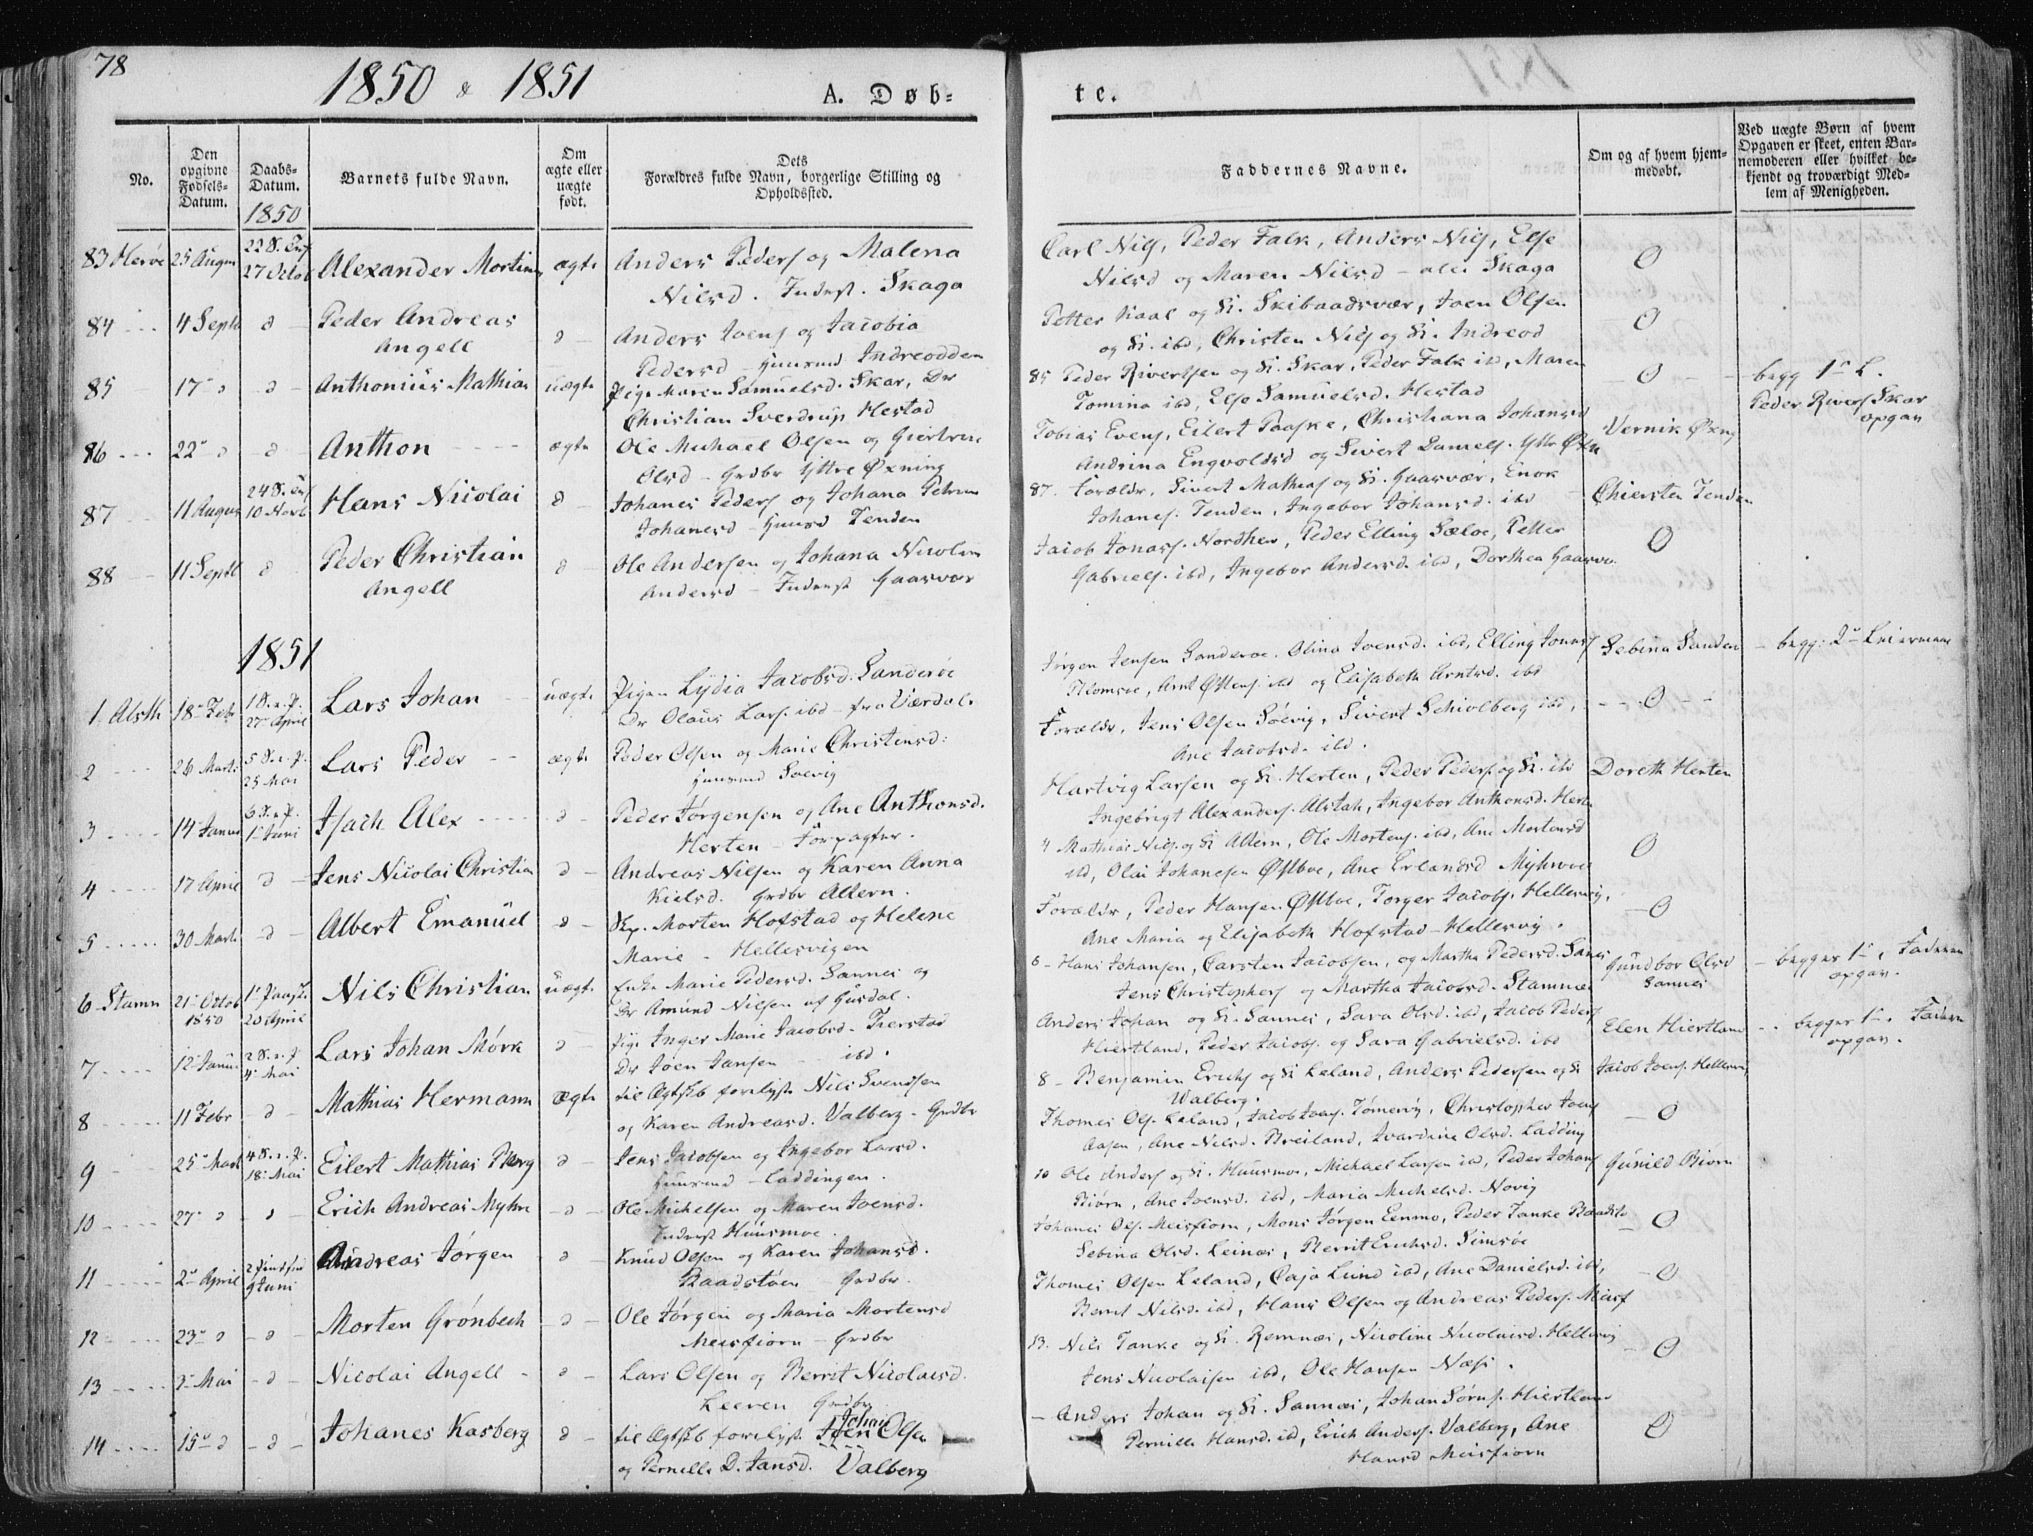 78
1850 & 1851
A. Døb-
te.
No.
Den opgivne Fødsels-Datum.
Daabs-Datum.
1850
Barnets fulde Navn.
Om ægte eller uægte født.
Dets
Forældres fulde Navn, borgerlige Stilling og
Opholdssted.
Faddernes Navne.
Om og af hvem hjem-
medøbt.
Ved uægte Børn af hvem
Opgaven er skeet, enten Bar-
nemoderen eller hvilket be-
kjendt og troværdigt Med-
lem af Menigheden.
83 Herøe 25 August 27 Octob Alexander Mortinus ægte Anders Peders og Malena
Nilsd. Inderst. Skaga
Carl Nils, Peder Falk, Anders Nils, Else
Nilsd og Maren Nilsd - alle Skaga
O
84 4 Septb d Peder Andreas
Angell
d Anders Joens og Jacobia
Pedersd Huusmd Indreodden
Petter Kaal og K. Skibaadsvær, Joen Olsen
og K. ibd, Christen Nils og K. Indreod
O
85 17 d d Anthonius Mathias uægte Pige Maren Samuelsd. Skar, Dr
Christian Sverdrup Hestad
85 Peder Rivertsen og K. Skar, Peder Falk ibd, Maren
Tomina ibd, Else Samuelsd. Hestad
O
begg 1ste L.
Peder Rivers Skar
opgav
86 22 d d Anthon ægte Ole Michael Olsen og
Olsd - Grdbr Yttre Øxning
Tobias Evens, Eilert Paaske, Christiana Johansd
Andrina Engvoldsd og Sivert Daniels. Yttr Øxn
Vernik Øxng
87 11 August 10 Novb Hans Nicolai d Johanes Peders og Johana Petrina
Johanesd - Huusd Tenden
87. Forældr, Sivert Mathias og K. Gaasvær, Enok
Johanes. Tenden, Ingebor Johansd. ibd
Chiersten Tenden
88 11 Septb d Peder Christian
Angell
d Ole Andersen og Johana Nicolina
Andersd - Inderst Gaasvær
Jacob Jonas. Nordher, Peder Elling Sæloe, Petter
Gabriels. ibd, Ingebor Andersd. ibd, Dorthea Gaasvær
O
1851
1. Alsth 18 Febr 1 S. e. P.
27 April
Lars Johan uægte Pigen Lydia Jacobsd. Sanderöe
Dr Olaus Lars. ibd - fra Værdal.
Jørgen Jensen Sanderoe. Olina Joensd. ibd, Elling Jonas
Blomsøe, Arnt Ottens. ibd og Elisabeth Arntsd. ibd
Sebina Sanden
begg: 2den Leiermaal
2 26 Marts 5 S. e. P.
25 Mai
Lars Peder ægte Peder Olsen og Marie Christensd:
Huusmd Soevig
Forældr, Jens Olsen Söevig, Sivert Schiolberg ibd,
Ane Jacobsd. ibd.
O
3 14 Januar 6 S. e. P.
1 Juni
Isach Alex d Peder Jørgensen og Ane Anthonsd.
Herten - Forpagter.
Hartvig Larsen og K. Herten, Peder Peders og K. ibd
Ingebrigt Alexanders. Alstah, Ingebor Anthonsd. Herten
Doreth Herten
4 17 April d Jens Nicolai Christian d Andreas Nilsen og Karen Anna
Nielsd. Grdbr Altern.
4 Mathias Nils og K Altern, Ole Mortens. ibd, Ane Mortensd
ibd, Olai Johanesen Østboe, Ane Erlandsd Myhrvoe
O
5 30 Marts d Albert Emanuel d Kp. Morten Hofstad og Helene
Marie - Hellesvigen
Forældr, Peder Hansen Østboe, Torger Jacobs. Hellesvig,
Ane Maria og Elisabeth Hofstad - Hellesvig.
O
6 Stamn 21 Octob
1850
1 Paaske
20 April
Nils Christian uægte Enke Marie Pedersd. Sannes og
Dr Amund Nilsen af Gusdal.
6 - Hans Johansen, Carsten Jacobsen, og Martha Pedersd. Sanes
Jens Christophers og Martha Jacobsd. Stamnes
Gundbor Olsd
Sannes
begges 1ste, Faderen
opgav.
7 12 Januar 2 S. e. P.
4 Mai
Lars Johan Mörk d Pige Inger Marie Jacobsd. Tierstad
Dr Joen Jansen - ibd.
Anders Johan og K. Sannes, Sara Olsd. ibd, Jacob Peders
Hiertland, Peder Jacobs. og Sara Gabrielsd. ibd
Elen Hiertland
begges 1ste, Faderen
opgav.
8 11 Febr d Mathias Hermann ægte til Ægtskb foreligst Nils Svendsen
og Karen Andreasd. Valberg - Grdbr
8 - Benjamin Erichs og K Leland, Anders Pedersen og K
Walberg.
Jacob Joens. Hellesvig
9 25 Marts 4 S. e. P.
18 Mai
Eilert Mathias Berg d Jens Jacobsen og Ingebor Larsd.
Huusmd - Laddingen.
Thomes Ols. Leland, Jacob Joens. Tömervig, Christopher Joens
Aasen, Ane Nilsd. Breiland, Ivardine Olsd. Ladding
O
10 27 d d Erich Andreas Myhre d Ole Michelsen og Maren Joensd.
Inderst Huusmoe.
10 Ole Anders og K. Huusmoe, Michael Larsen ibd, Peder Johans
Biörn, Ane Joensd. ibd, Maria Michelsd. Novig
Gunild Biörn
11 2 April 2 Pindse
9 Juni
Andreas Jörgen d Knud Olsen og Karen Johansd.
Baadstöen - Grdbr.
Johanes Ols. Meisfiorn, Mons Jörgen Eenmo, Peder Tanke Baadstö
Sebina Olsd. Leines, Berrit Erichsd. Simsöe
O
12 23 d d Morten Grönbech d Ole Jørgen og Maria Mortensd
Meisfiorn - Grdbr
Thomes Olsen Leland, Caja Lund ibd, Ane Danielsd. ibd,
Berret Nilsd. ibd, Hans Olsen og Andreas Peders. Meisf
O
13 2 Mai d Nicolai Angell d Lars Olsen og Berrit Nicolaisd.
Leeren Grdbr
13. Nils Tanke og K. Remnes, Nicoline Nicolaisd. Hellesvig
Jens Nicolaisen ibd, Ole Hansen Næss.
O
14 15 d d Johanes Kasberg d til Ægtskb foreligst Johan Olsen
og Pernille D. Jansd. Valberg
Anders Johan og K. Sannes, Johan Sörns. Hiertland
Pernille Hansd. ibd, Erich Anders. Valberg, Ane
Hansd Meisfiorn
O